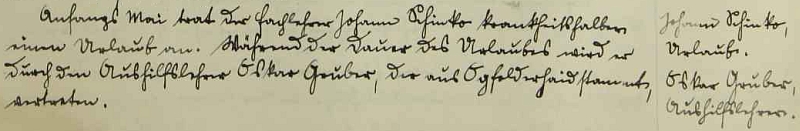 Anfangs Mai trat der Fachlehrer Johann Schinko krankheitshalber
einen Urlaub an. Während der Dauer des Urlaubes wird er
durch den Aushilfslehrer Oskar Gruber, der aus Ogfolderhaid stammt,
vertreten.
Johann Schinko,
Urlaub.
Oskar Gruber,
Aushilfslehrer.